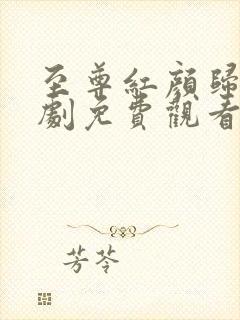 至尊紅顏歸
劇免費觀看
芳苓